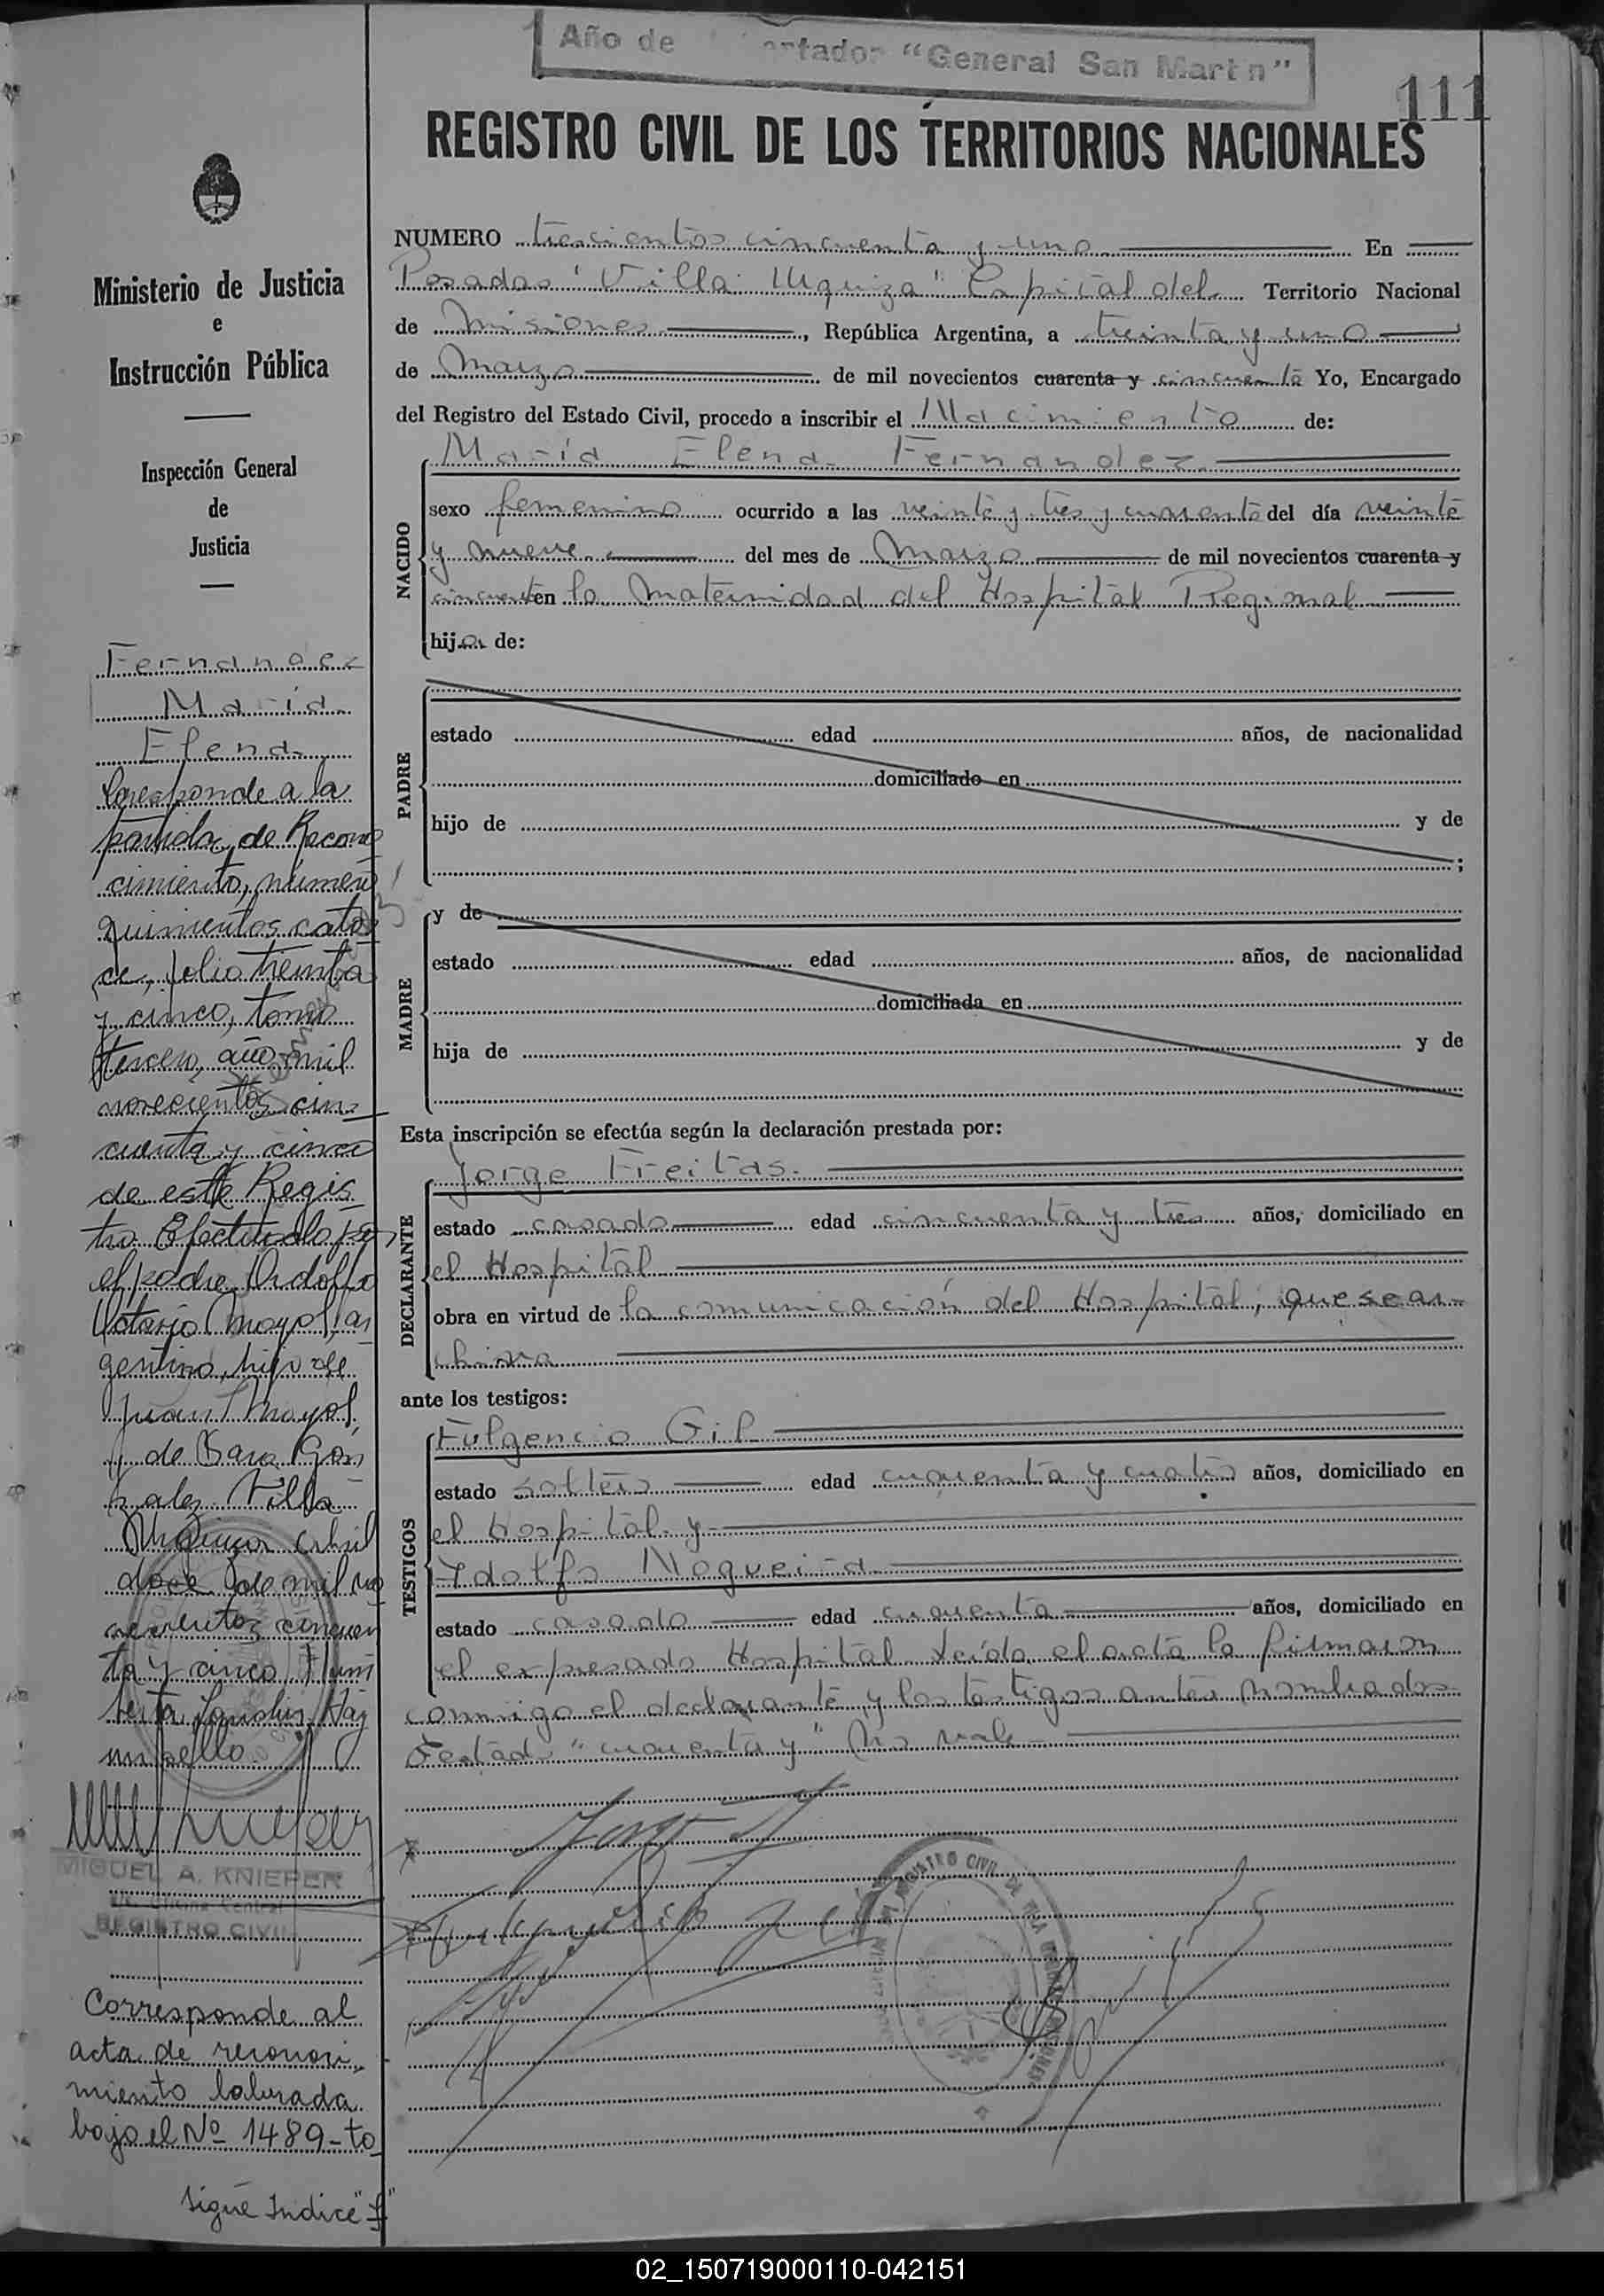 Año de ertador "General San Martin"
111
REGISTRO CIVIL DE LOS TERRITORIOS NACIONALES
Ministerio de Justicia
e
Instrucción Pública
Inspección General
de
Justicia
Fernandez
María
Elena
Corresponde a la
partida de Recono
cimiento, número
quinientos cator
ce, folio treinta
y cinco, tomo
tercero, año mil
novecientos cin
cuenta y cinco
de este Regis
tro Efectuado por
el padre
Mayol, ar
gentino, hijo de
Juan Mayol
y de Sara Gon
zalez Villa
Urquiza Abril
doce de mil no
vecientos cincuen
ta y cinco.
Hay
un sello
MIGUEL A. KNIEPER
Oficina Central
REGISTRO CIVIL
Corresponde al
acta de reconoci
miento labrada
bajo el Nº 1489-to
sigue Indice "f"
NUMERO trescientos cincuenta y uno En
Posadas "Villa Urquiza" Capital del Territorio Nacional
de Misiones, República Argentina, a treinta y uno
de Marzo de mil novecientos cuarenta y cincuenta Yo, Encargado
del Registro del Estado Civil, procedo a inscribir el Nacimiento de:
María Elena Fernandez
NACIDO
sexo femenino ocurrido a las veinte y tres y cuarenta del día veinte
y nueve del mes de Marzo de mil novecientos cuarenta y
cincuenta en la Maternidad del Hospital Regional
hija de:
PADRE
estado edad años, de nacionalidad
domiciliado en
hijo de y de
;
MADRE
y de
estado edad años, de nacionalidad
domiciliada en
hija de y de
Esta inscripción se efectúa según la declaración prestada por:
Jorge Freitas.
DECLARANTE
estado casado edad cincuenta y tres años, domiciliado en
el Hospital
obra en virtud de la comunicación del Hospital, que se ar-
chiva
ante los testigos:
Fulgencio Gil
TESTIGOS
estado soltero edad cuarenta y cuatro años, domiciliado en
el Hospital y
Nogueira
estado casado edad cuarenta años, domiciliado en
el expresado Hospital. Leída el acta la firmaron
conmigo el declarante y los testigos antes nombrados
Testado "cuarenta y" No vale
REGISTRO CIVIL
02_150719000110-042151